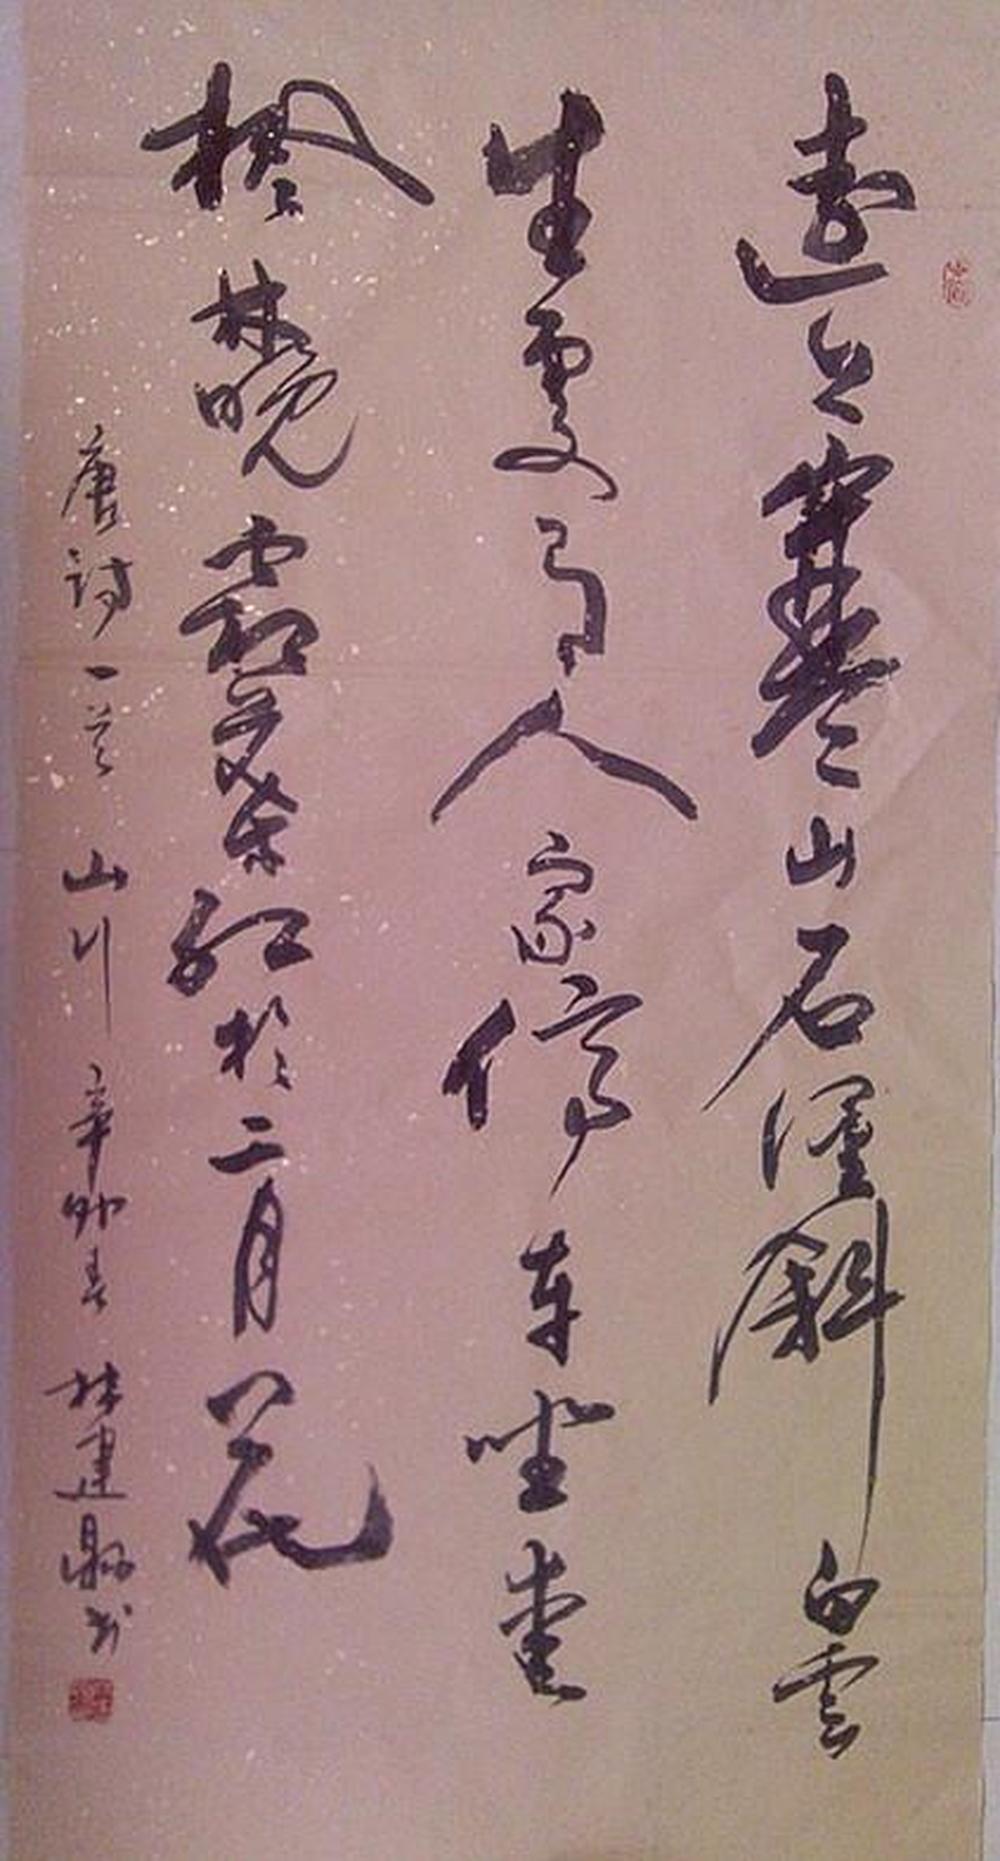 遠上寒山石徑斜白雲
生處有人家停車坐愛
楓林晚霜葉紅於二月花
唐詩一首山川辛卯春林建勛书